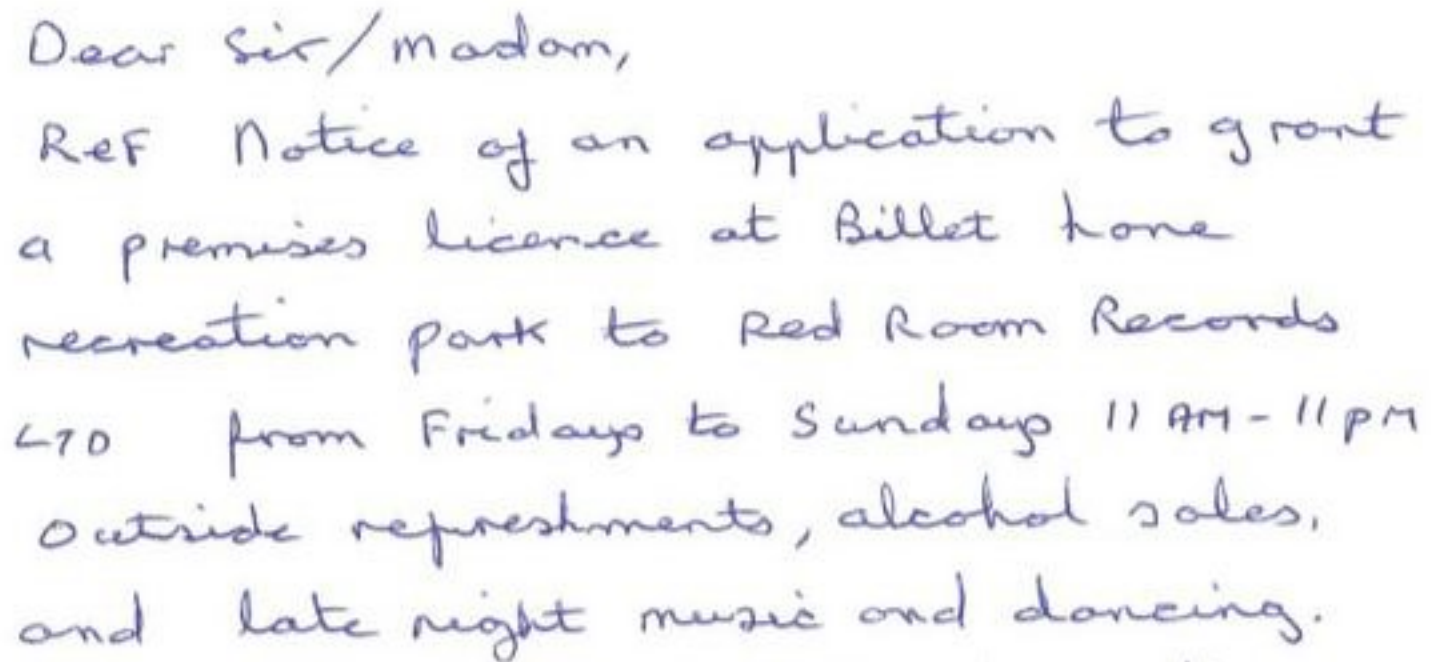 Dear Sir/Madam,
Ref Notice of an application to grant
a premises licence at Billet Lane
recreation park to Red Room Records
LTD from Fridays to Sundays 11 AM - 11 PM
outside refreshments, alcohol sales,
and late night music and dancing.